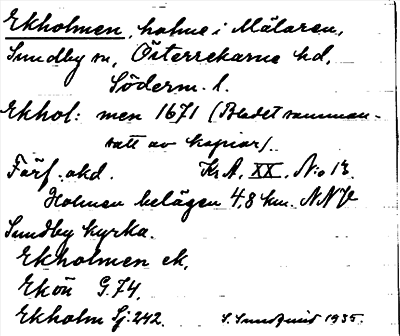 Ekholmen, holme i Mälaren,
Sundby sn, Österrekarne hd,
Söderm. l.
Ekhol: men 1671 (Bladet samman-
satt av kopior).
Förf. okd. Kr A. XX. No 13.
Holmen belägen 4,8 km. NNV
Sundby kyrka.
Ekholmen ek,
Ekön G.74,
Ekholm Sj:242. S. Sundqvist 1935.